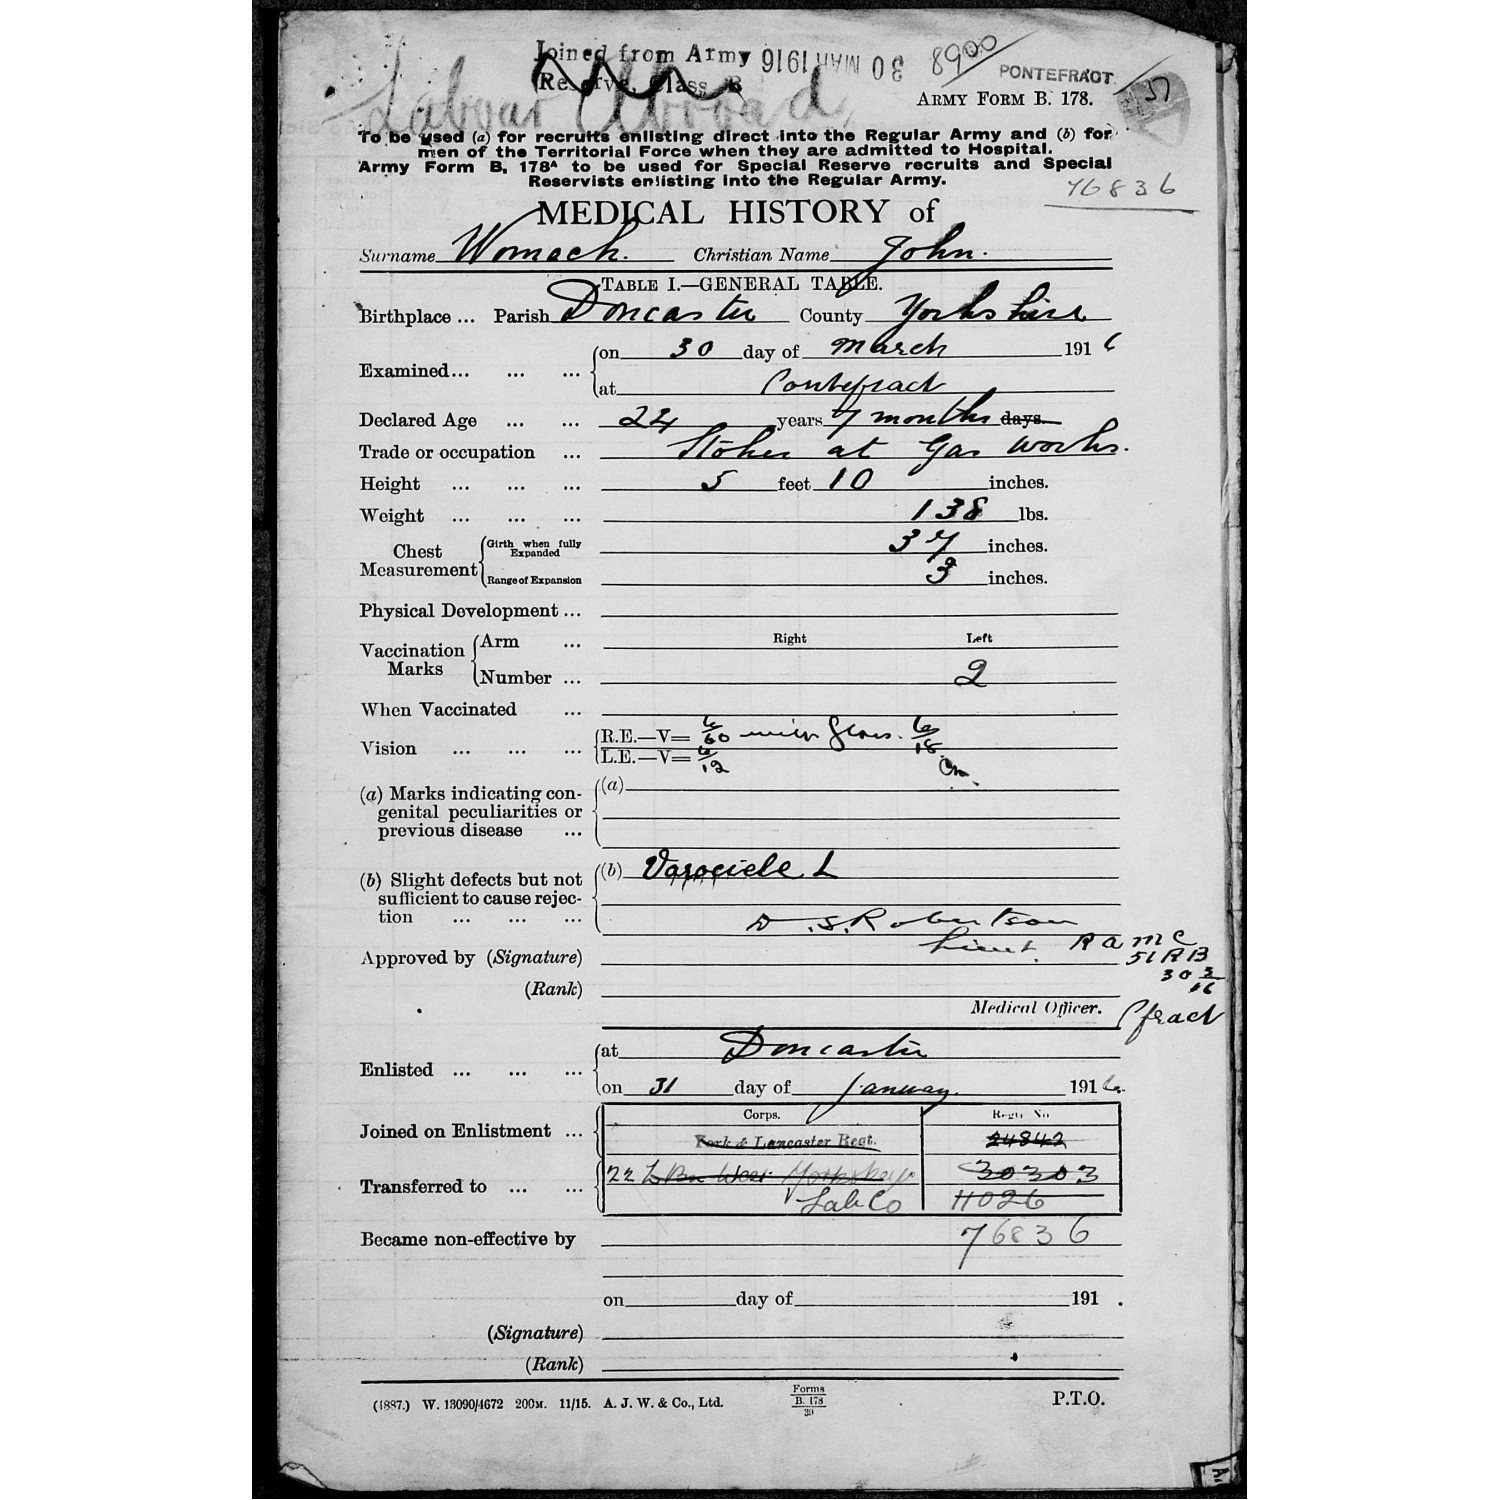 Joined from Army 30 MAR 1916 8900
Reserve, Class B PONTEFRACT 37
Labour Abroad
ARMY FORM B. 178.
To be used (a) for recruits enlisting direct into the Regular Army and (b) for
men of the Territorial Force when they are admitted to Hospital.
Army Form B, 178A to be used for Special Reserve recruits and Special
Reservists enlisting into the Regular Army.
76836
MEDICAL HISTORY of
Surname Womack. Christian Name John.
TABLE I.—GENERAL TABLE.
Birthplace ... Parish Doncaster County Yorkshire
Examined... ... ... on 30 day of March 1916
at Pontefract
Declared Age ... ... 24 years 7 months days.
Trade or occupation ... Stoker at Gas Works.
Height ... ... ... 5 feet 10 inches.
Weight ... ... ... 138 lbs.
Chest Measurement Girth when fully Expanded 37 inches.
Range of Expansion 3 inches.
Physical Development ...
Vaccination Marks Arm ... Right Left
Number ... 2
When Vaccinated ...
Vision ... ... ... R.E.—V= 6/60 with glass. 6/18
L.E.—V= 6/12
(a) Marks indicating con- (a)
genital peculiarities or
previous disease ...
(b) Slight defects but not (b) Varocicele L
sufficient to cause rejec-
tion ... ... ... D.S. Robertson
Lieut. RAMC
Approved by (Signature) 51 RB
30 3/16
(Rank)
Medical Officer. Pfract
Enlisted ... ... ... at Doncaster
on 31 day of January. 1916.
Corps. Regtl. No.
Joined on Enlistment ... York & Lancaster Regt. 24842
Transferred to ... ... 22 L Bn West Yorks 30303
Lab Co 11026
Became non-effective by 76836
on day of 191 .
(Signature)
(Rank)
(1887.) W. 13090/4672 200M. 11/15. A. J. W. & Co., Ltd. Forms B. 178 39 P.T.O.